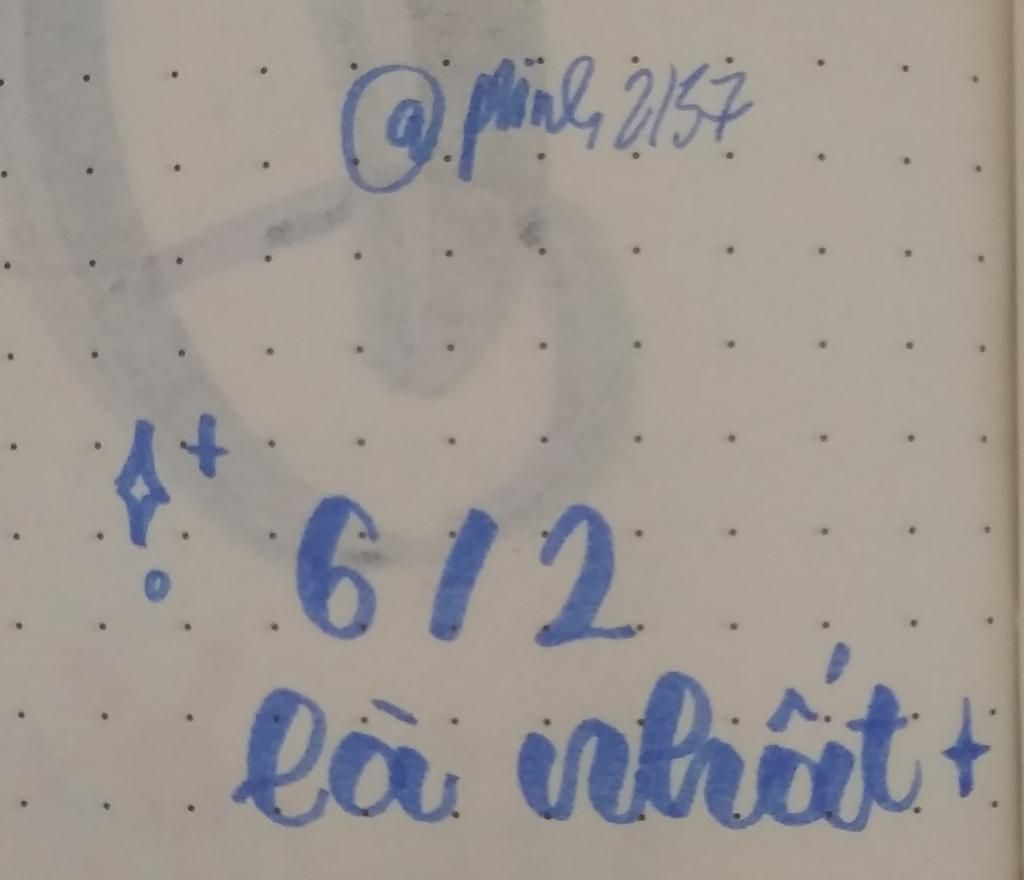 @minh 2157
6/2
là nhất